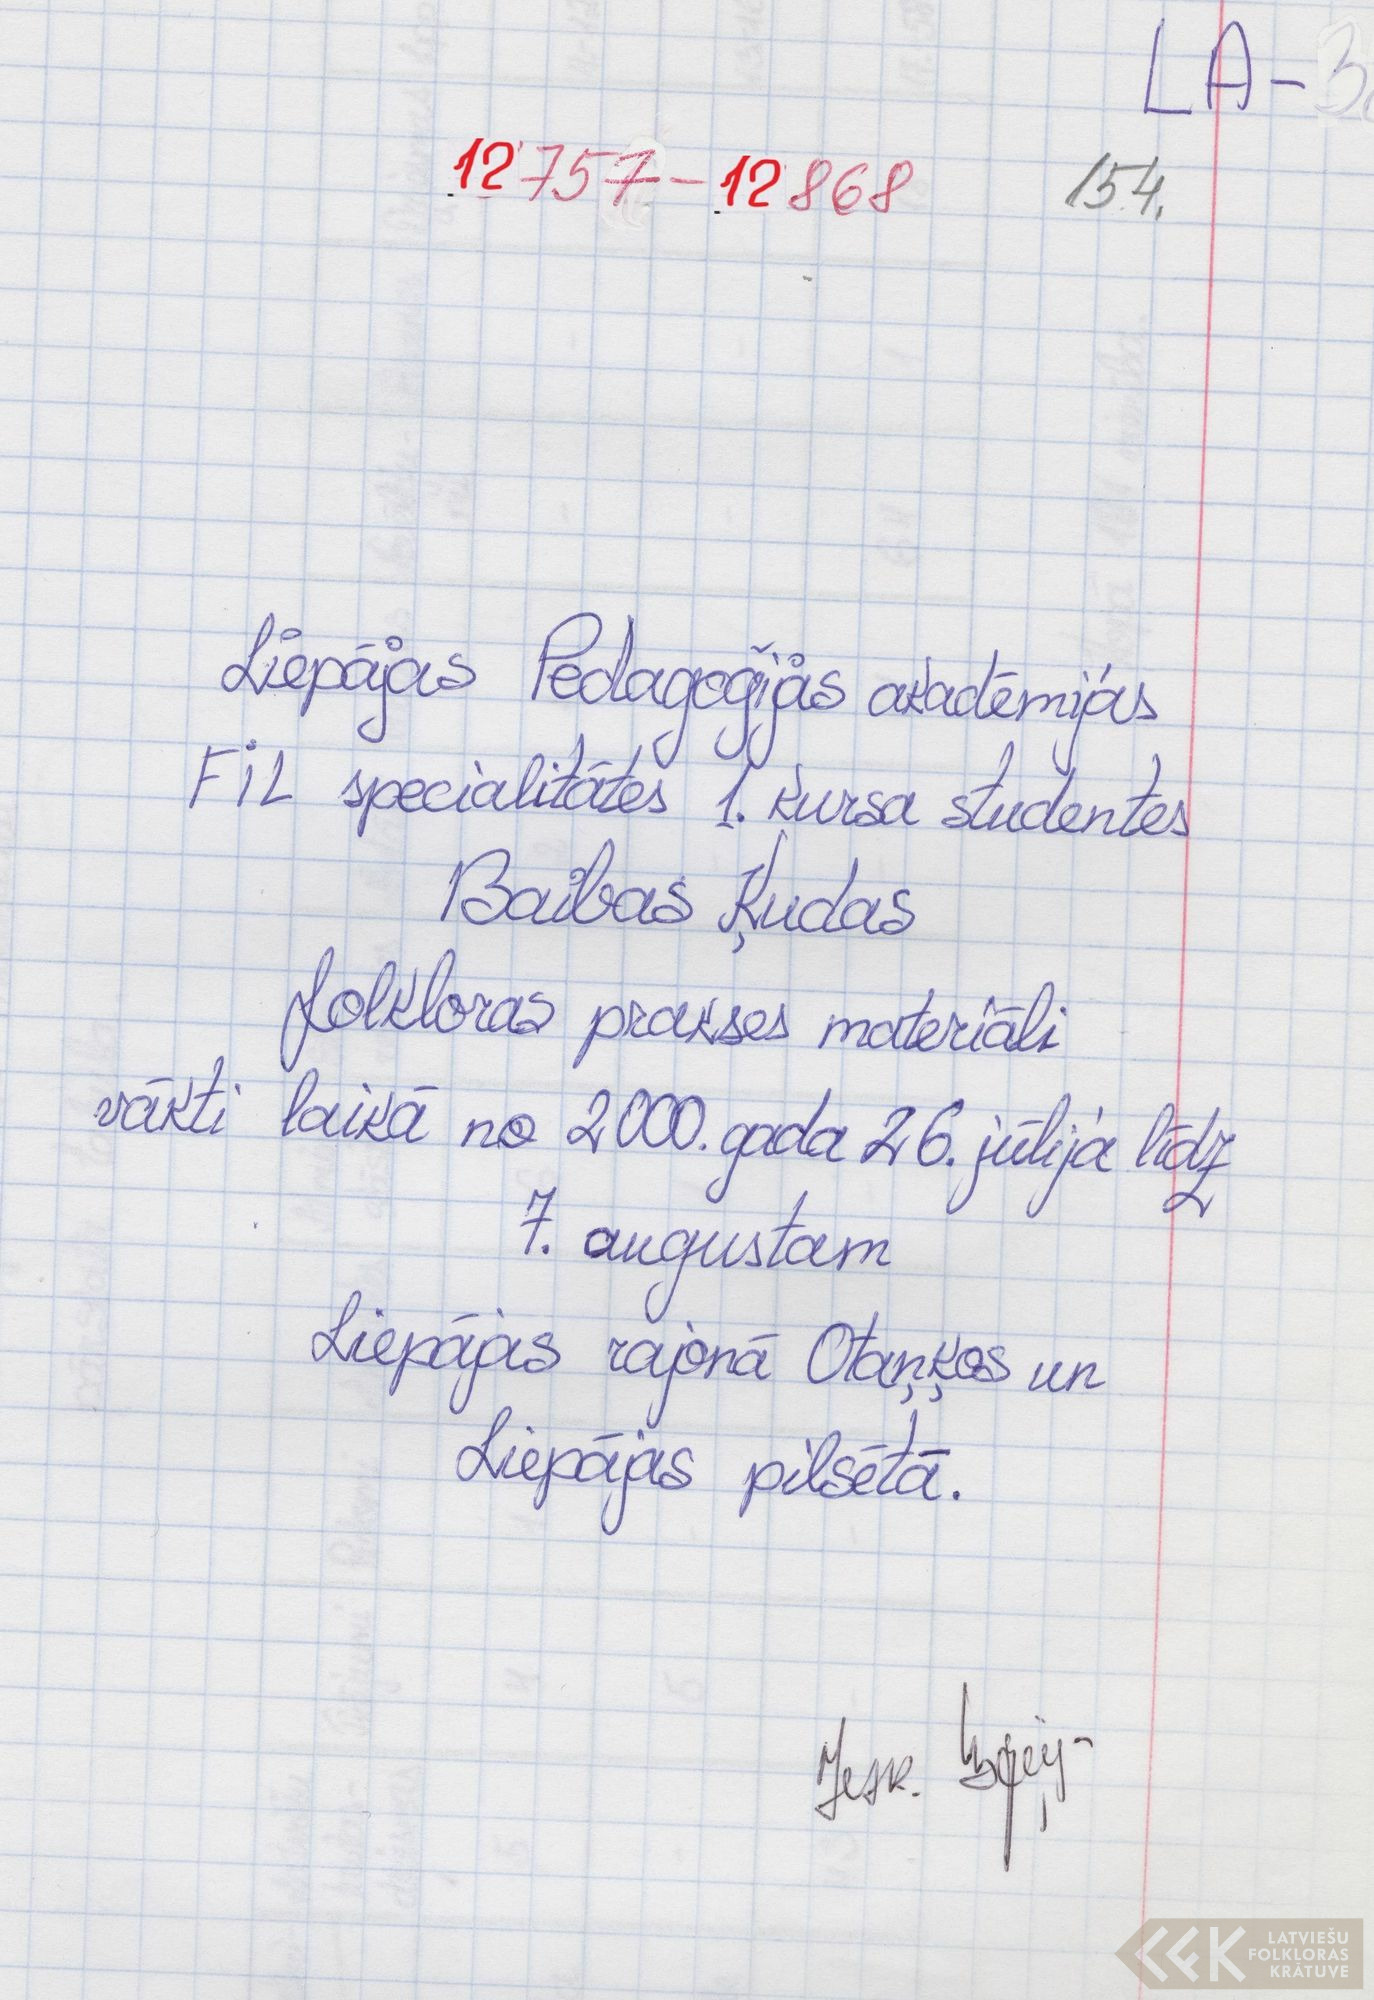 LA-3
12757-12868
154.
Liepājas Pedagoģijas akadēmijas
FiL specialitātes 1. kursa studentes
Baibas Ķudas
folkloras prakses materiāli
vākti laikā no 2000. gada 26. jūlija līdz
7. augustam
Liepājas rajonā Otaņķos un
Liepājas pilsētā.
LATVIEŠU
FOLKLORAS
KRĀTUVE